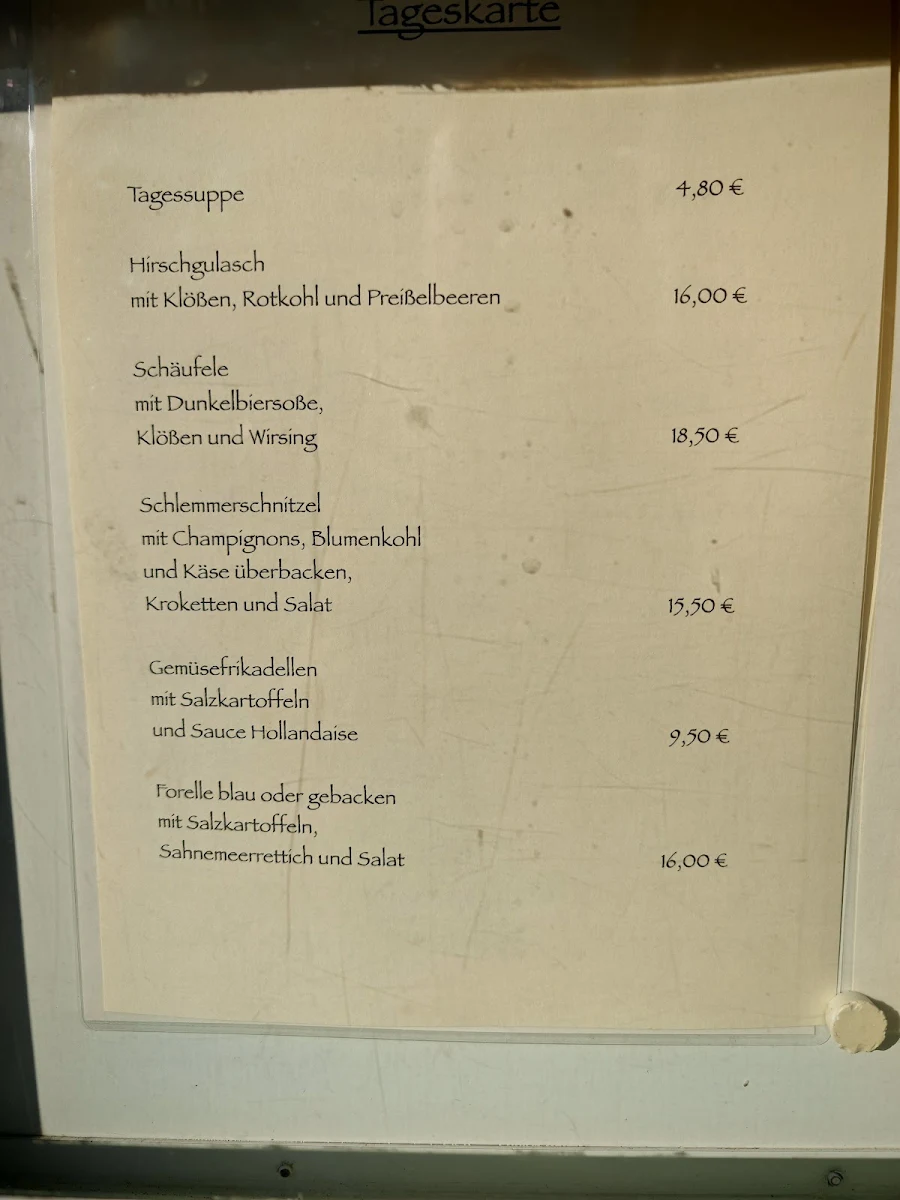 Tageskarte
Tagessuppe 4,80 €
Hirschgulasch
mit Klößen, Rotkohl und Preißelbeeren 16,00 €
Schäufele
mit Dunkelbiersoße,
Klößen und Wirsing 18,50 €
Schlemmerschnitzel
mit Champignons, Blumenkohl
und Käse überbacken,
Kroketten und Salat 15,50 €
Gemüsefrikadellen
mit Salzkartoffeln
und Sauce Hollandaise 9,50 €
Forelle blau oder gebacken
mit Salzkartoffeln,
Sahnemeerrettich und Salat 16,00 €